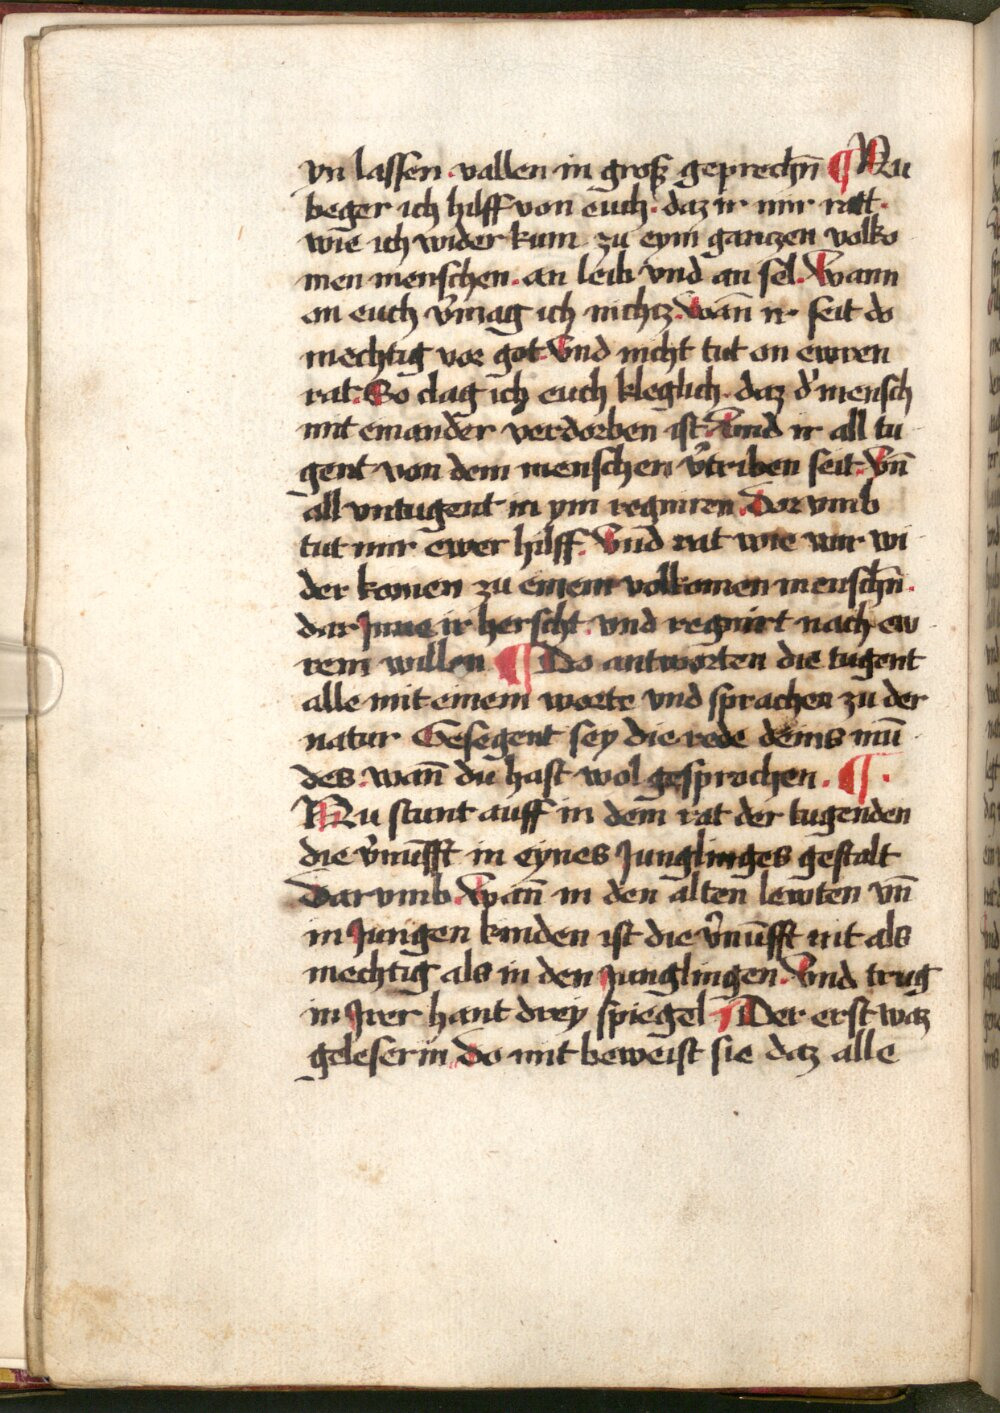 vn lassen. vallen in groß geprechn̄ ¶ Nu
beger ich hilff von euch. daz ir mir ratt.
wie ich wider kum zu eym ganczen volko
men menschen. an leib vnd an sel. Wann
on euch v̉mag ich nichtz. Wan̄ ir seit do
mechtig vor got. Vnd nicht tut on ewren
rat. So clag ich euch kleglich. daz d̉ mensch
mit einander verdorben ist. Vnd ir all tu
gent von dem menschen v̉triben seit. Vn̄
all vntugent in ym regniren. Dor vmb
tut mir ewer hilff. Vnd rat wie wir wi
der komen zu einem volkomen menschn̄.
dar Jnne ir herscht. vnd regnirt nach ew
rem willen ¶ Do antworten die tugent
alle mit einem worte vnd sprachen zu der
natur Gesegent sey die rede deins mu̅
des. wan̄ du hast wol gesprochen. ¶.
Nu stunt auff in dem rat der tugenden
die v̉nu̅fft in eynes Junglinges gestalt
Dar vmb. Wan̄ in den alten lewten vn̄
in Jungen kinden ist die v̉nu̅fft nit als
mechtig als in den Junglingen. Vnd trug
in Jrer hant drey spiegel ¶ Der erst waz
geleserin. Do mit beweist sie daz alle